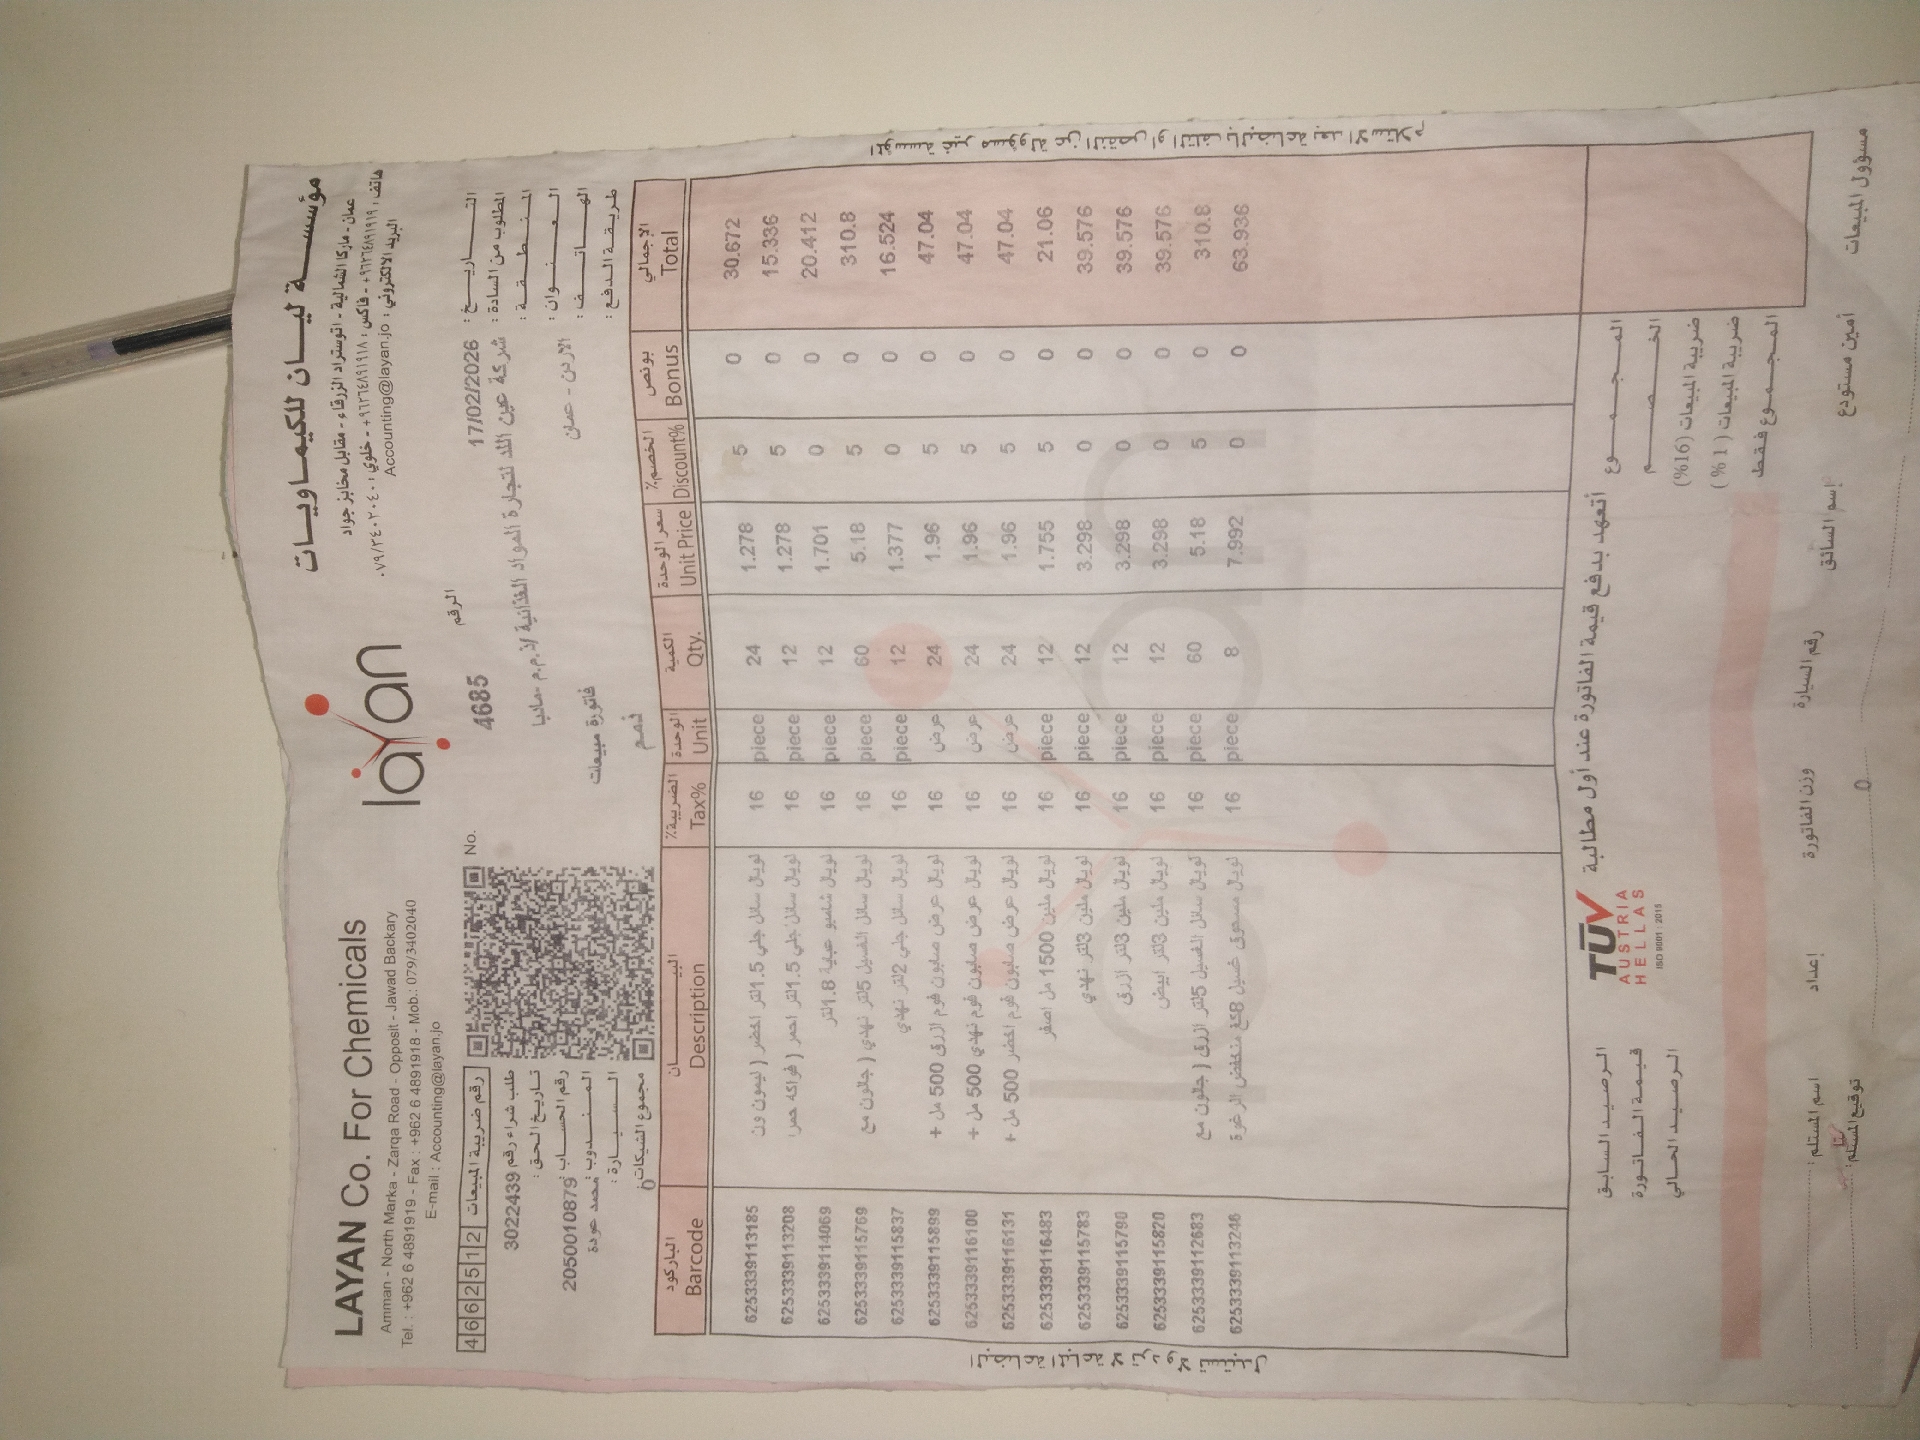 LAYAN Co. For Chemicals
Amman - North Marka - Zarqa Road - Opposit - Jawad Backary
Tel. : +962 6 4891919 - Fax : +962 6 4891918 - Mob.: 079/3402040
E-mail : Accounting@layan.jo
layan
مؤسسة ليان للكيماويات
عمان - ماركا الشمالية - اتوستراد الزرقاء - مقابل مخابز جواد
هاتف : ٩٦٢٦٤٨٩١٩١٩+ - فاكس : ٩٦٢٦٤٨٩١٩١٨+ - خلوي : ٠٧٩/٣٤٠٢٠٤٠
البريد الالكتروني : Accounting@layan.jo
4662512 رقم ضريبة المبيعات
طلب شراء رقم 30223439
تاريخ الحق :
رقم الحساب : 2050010879
المندوب : محمد عودة
السيارة :
مجموع الشيكات : 0
No. 4685 الرقم
فاتورة مبيعات
ذمم
التاريخ : 17/02/2026
المطلوب من السادة : شركة عين اللد لتجارة المواد الغذائية /ذ.م.م -مادبا
المنطقة :
العنوان : الاردن - عمان
الهاتف :
طريقة الدفع :
الباركود البيان الضريبة% الوحدة الكمية سعر الوحدة الخصم% بونص الإجمالي
Barcode Description Tax% Unit Qty. Unit Price Discount% Bonus Total
6253339113185 لويال سائل جلي 1.5لتر اخضر ( ليمون ون 16 piece 24 1.278 5 0 30.672
6253339113208 لويال سائل جلي 1.5لتر احمر ( فواكه حمرا 16 piece 12 1.278 5 0 15.336
6253339114069 لويال شامبو عباية 1.8لتر 16 piece 12 1.701 0 0 20.412
6253339115769 لويال سائل الغسيل 5لتر نهدي ( جالون مع 16 piece 60 5.18 5 0 310.8
6253339115837 لويال سائل جلي 2لتر نهدي 16 piece 12 1.377 0 0 16.524
6253339115899 لويال عرض صابون فوم ازرق 500 مل + 16 عرض 24 1.96 5 0 47.04
6253339116100 لويال عرض صابون فوم نهدي 500 مل + 16 عرض 24 1.96 5 0 47.04
6253339116131 لويال عرض صابون فوم اخضر 500 مل + 16 عرض 24 1.96 5 0 47.04
6253339116483 لويال ملين 1500 مل اصفر 16 piece 12 1.755 5 0 21.06
6253339115783 لويال ملين 3لتر نهدي 16 piece 12 3.298 0 0 39.576
6253339115790 لويال ملين 3لتر ازرق 16 piece 12 3.298 0 0 39.576
6253339115820 لويال ملين 3لتر ابيض 16 piece 12 3.298 0 0 39.576
6253339112683 لويال سائل الغسيل 5لتر ازرق ( جالون مع 16 piece 60 5.18 5 0 310.8
6253339113246 لويال مسحوق غسيل 8كغ منخفض الرغوة 16 piece 8 7.992 0 0 63.936
البضاعة المباعة لا ترد ولا تستبدل
المؤسسة غير مسؤولة عن النقص او التلف بالبضاعة بعد الاستلام
الرصيد السابق
قيمة الفاتورة
الرصيد الحالي
TÜV
AUSTRIA
HELLAS
ISO 9001 : 2015
أتعهد بدفع قيمة الفاتورة عند أول مطالبة
المجموع
الخصم
ضريبة المبيعات (16%)
ضريبة المبيعات (1%)
المجموع فقط
اسم المستلم :
توقيع المستلم :
إعداد
وزن الفاتورة
0
رقم السيارة
إسم السائق
أمين مستودع
مسؤول المبيعات